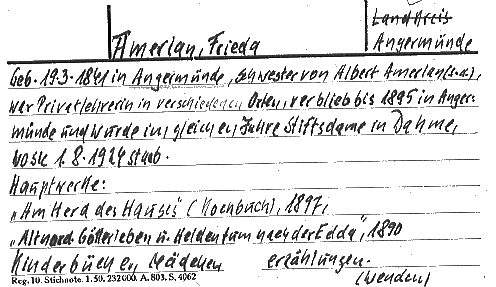 Landkreis
Amerlan, Frieda Angermünde
Geb. 19.3.1841 in Angermünde, Schwester von Albert Amerlan (s.d.),
war Privatlehrerin in verschiedenen Orten, verblieb bis 1895 in Anger-
münde und wurde im gleichen Jahre Stiftsdame in Dahme,
wo sie 1.8.1924 starb.
Hauptwerke:
„Am Herd des Hauses" (Kochbuch), 1897,
„Altnord. Götterleben u. Heldentum nach der Edda", 1890
Kinderbücher, Mädchen erzählungen.
(wenden)
Reg. 10. Stichnote. 1.50. 232000. A. 803. S. 4062